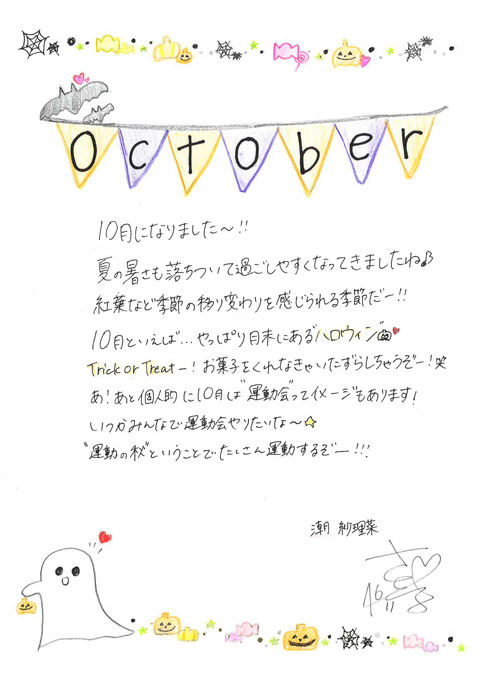 October
10月になりました〜!!
夏の暑さも落ちついて過ごしやすくなってきましたね♪
紅葉など季節の移り変わりを感じられる季節だー!!
10月といえば…やっぱり月末にある"ハロウィン"
Trick or Treatー!お菓子をくれなきゃいたずらしちゃうぞー!笑
あ!あと個人的に10月は"運動会"ってイメージもあります!
いつかみんなで運動会やりたいな〜☆
"運動の秋"ということでたくさん運動するぞー!!!
潮 紗理菜
46